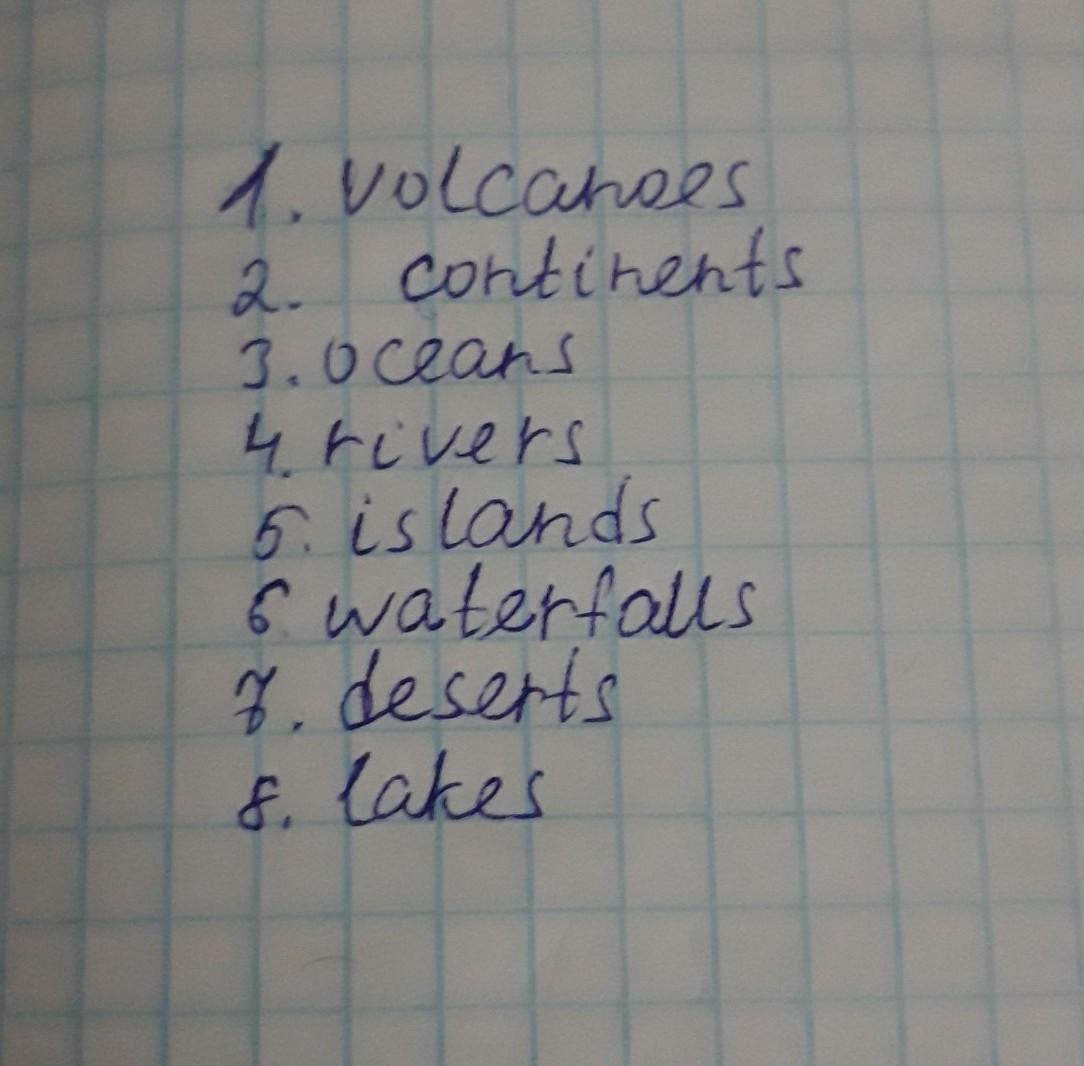 1. volcanoes
2. continents
3. oceans
4. rivers
5. islands
6. waterfalls
7. deserts
8. lakes